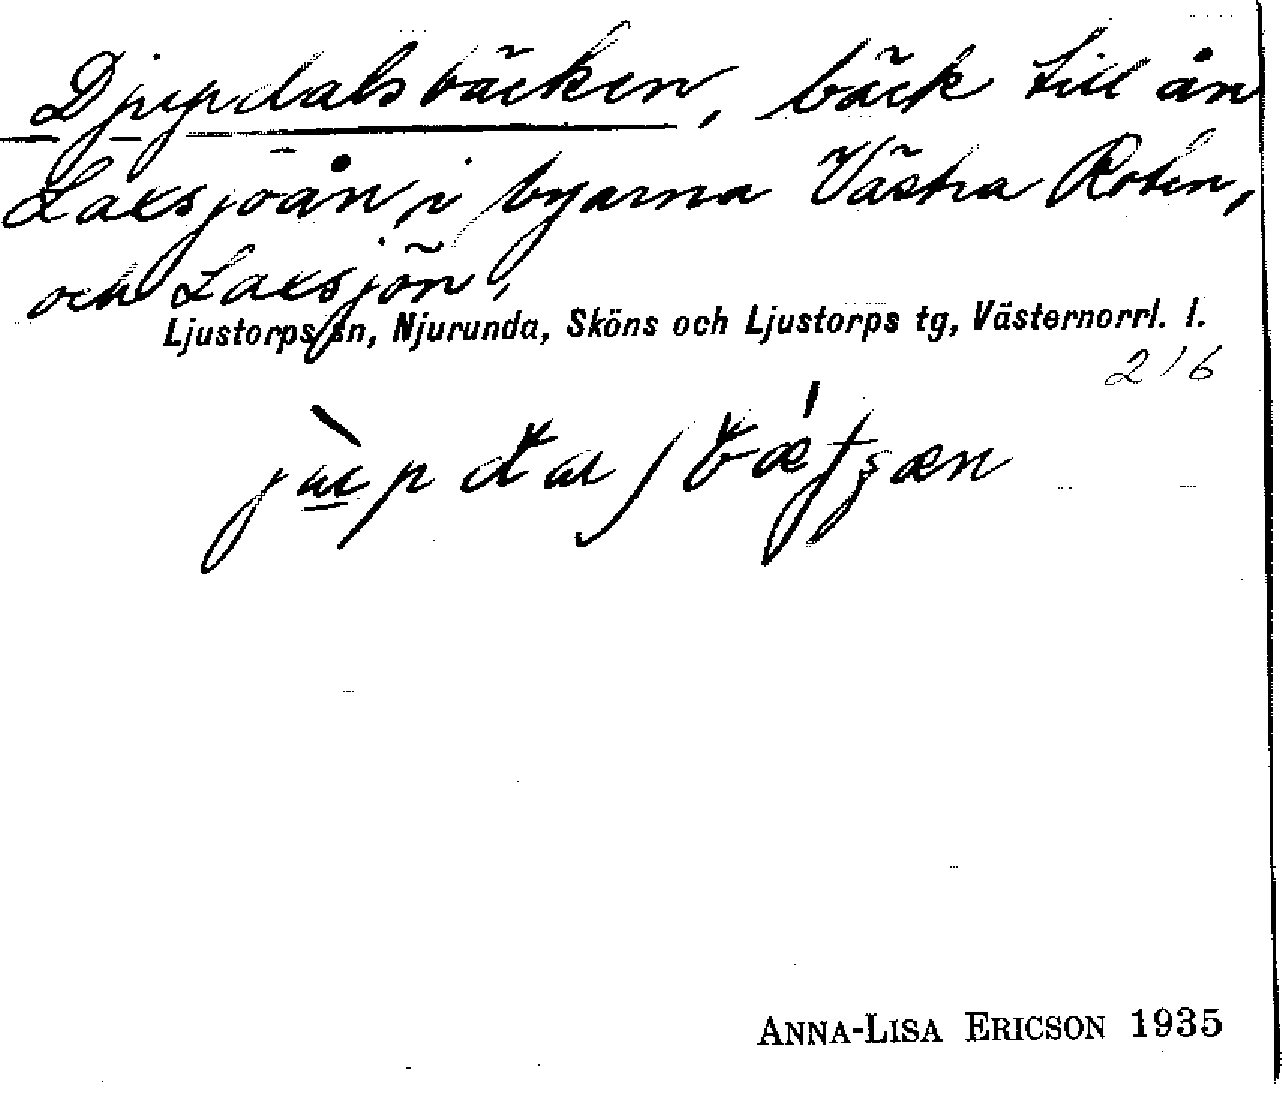 Djupdalsbäcken, bäck till ån
Laxsjöån, i byarna Västra Roten,
och Laxsjön,
Ljustorps sn, Njurunda, Sköns och Ljustorps tg, Västernorrl. l.
216
ANNA-LISA ERICSON 1935